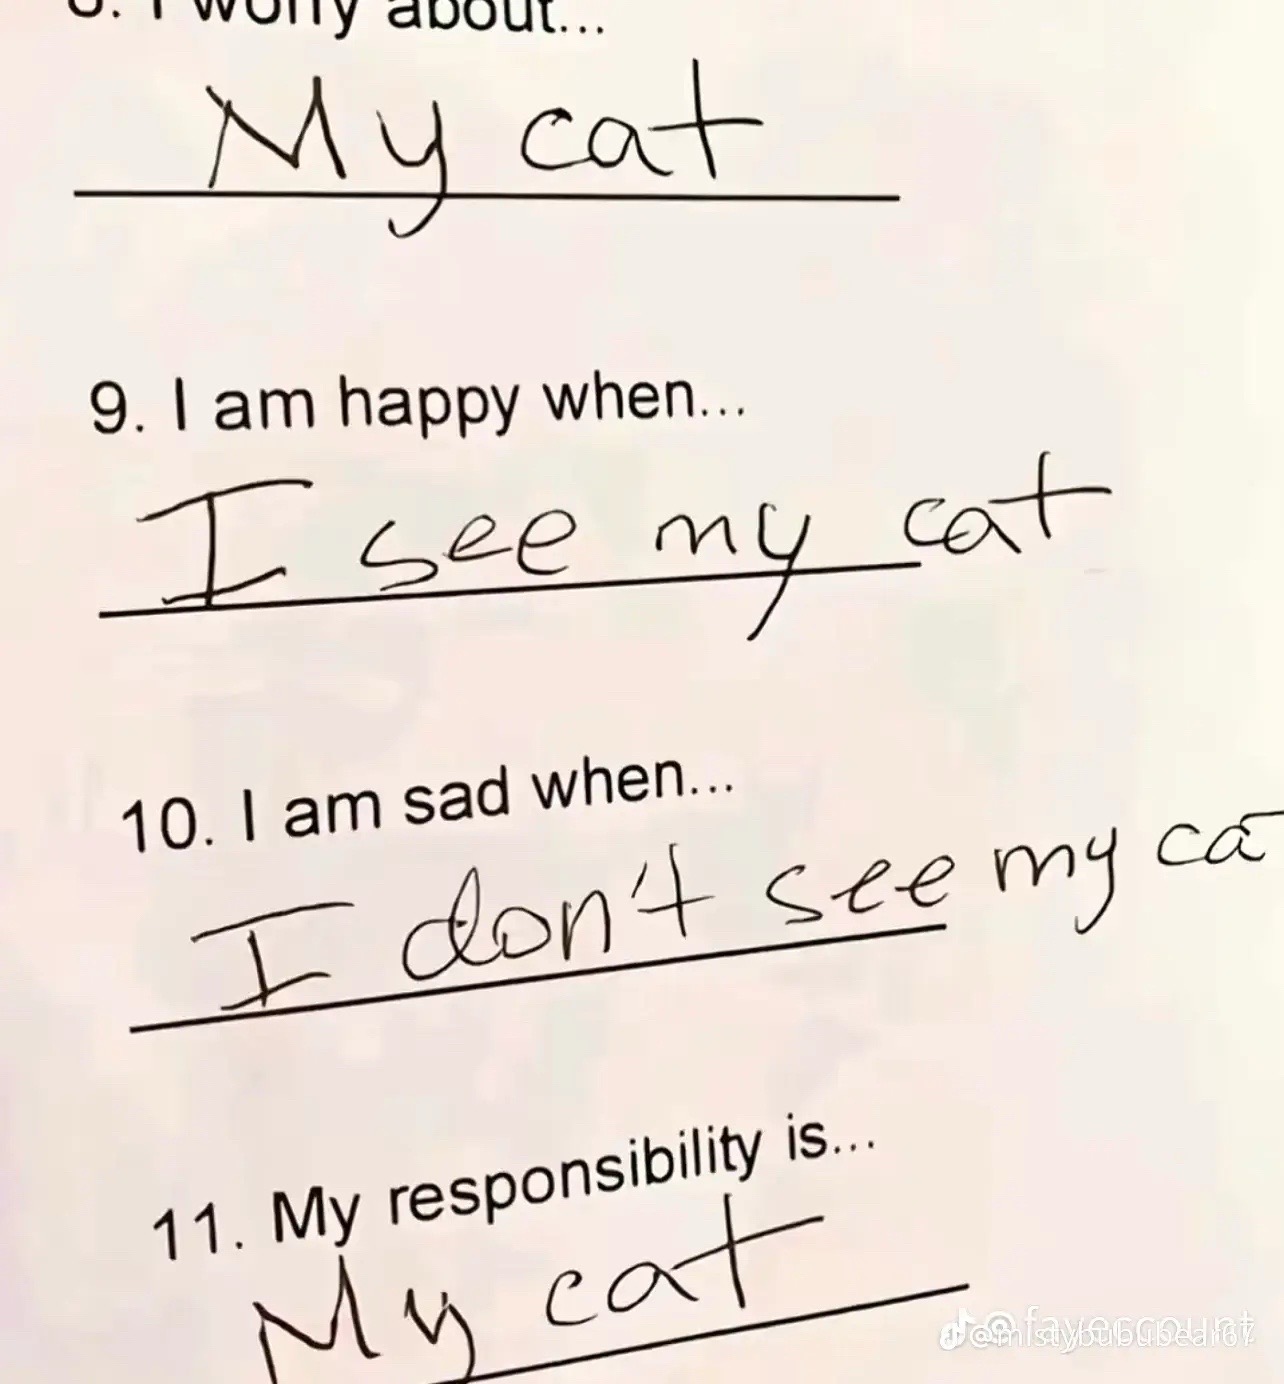 8. I worry about...
My cat
9. I am happy when...
I see my cat
10. I am sad when...
I don't see my ca
11. My responsibility is...
My cat
@mistybububear67